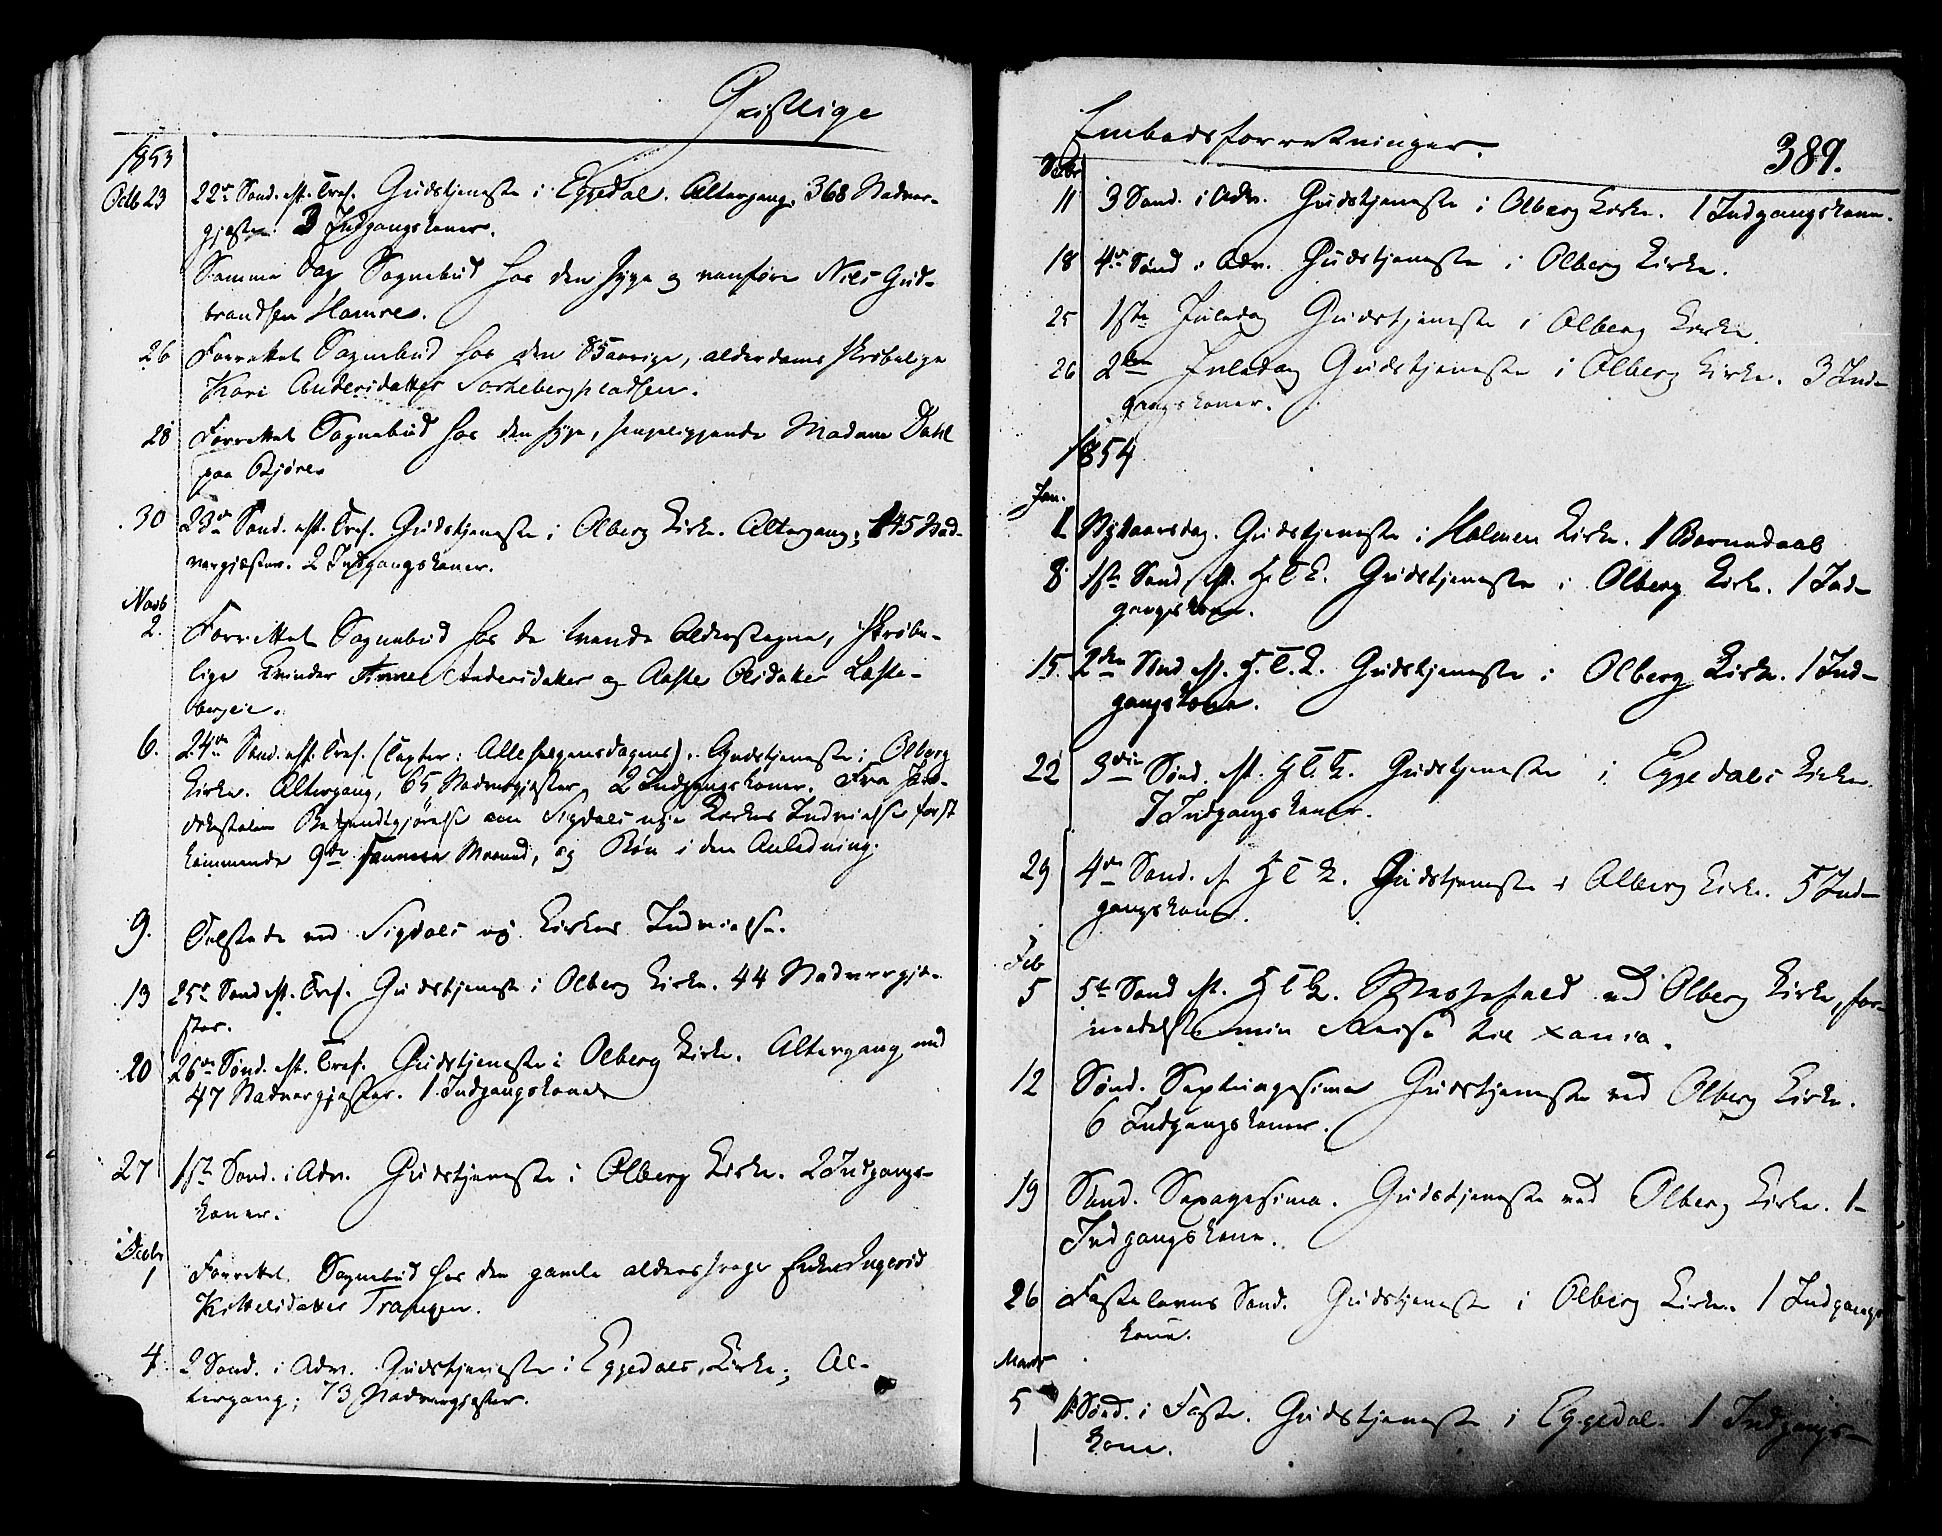 Geistlige
1853
Octb 23 22de Sønd. eft. Tref. Gudstjeneste i Eggedal. Altergang; 368 Nadver-
gjester. 3 Indgangskoner.
Samme Dag Sognebud hos den syge og vanføre Niels Gud-
brandsen Hamre.
26 Forrettet Sognebud hos den 85aarige, alderdoms skrøbelige
Kari Andersdatter
28 Forrettet Sognebud hos den syge, sengeliggende Madam Dahl
paa Bjøre
30 23de Sønd. eft. Tref. Gudstjeneste i Olberg Kirke. Altergang; 145 Nad-
vergjester. 2 Indgangskoner.
Novb
2. Forrettet Sognebud hos de tvende Alderstegne, skrøbe-
lige Kvinder Anne Andersdatter og Aaste Olsdatter
6. 24de Sønd. eft. Tref. (Texter: Allehelgensdagens). Gudstjeneste i Olberg
Kirke. Altergang, 65 Nadvergjester, 2 Indgangskoner. Fra Præ-
dikestolen Bekjendtgjørelse om Sigdals nye Kirkes Indvielse først
kommende 9de samme Maaned, og Bøn i den Anledning.
9. Tilstede ved Sigdals nye Kirkes Indvielse.
13 25de Sønd. eft. Tref. Gudstjeneste i Olberg Kirke. 44 Nadvergje-
ster.
20 26de Sønd. eft. Tref. Gudstjeneste i Olberg Kirke. Altergang med
47 Nadvergjester. 1 Indgangskone
27 1ste Sønd. i Adv. Gudstjeneste i Olberg Kirke. 2 Indgangs-
koner.
Decbr
1 Forrettet Sognebud hos den gamle alderssvage Enke Ingerid
Kittelsdatter
4 2 Sønd. i Adv. Gudstjeneste i Eggedals Kirke; Al-
tergang; 73 Nadvergjester.
Embedsforretninger.
389.
Decbr
11 3 Sønd. i Adv. Gudstjeneste i Olberg Kirke. 1 Indgangskone.
18 4de Sønd i Adv. Gudstjeneste i Olberg Kirke.
25 1ste Juledag Gudstjeneste i Olberg Kirke.
26 2den Juledag Gudstjeneste i Olberg Kirke. 3 Ind-
gangskoner.
1854
Jan.
1 Nytaarsdag. Gudstjeneste i Holmen Kirke. 1 Barnedaab
8 1ste Sønd eft. H. T. K. Gudstjeneste i Olberg Kirke. 1 Ind-
gangskone.
15. 2den Sønd eft. H. T. K. Gudstjeneste i Olberg Kirke. 1 Ind-
gangskone.
22 3die Sønd. eft. H. T. K. Gudstjeneste i Eggedals Kirke.
7 Indgangskoner.
29 4de Sønd. ef H T K. Gudstjeneste i Olberg Kirke. 5 Ind-
gangskoner.
Feb
5 5te Sønd eft. H T K. Messefald ved Olberg Kirke, for-
medelst min Reise til Xania.
12 Sønd. Septuagesima Gudstjeneste ved Olberg Kirke.
6 Indgangskoner.
19 Sønd. Sexagesima. Gudstjeneste ved Olberg Kirke. 1-
Indgangskone.
26 Fastelavns Sønd. Gudstjeneste i Olberg Kirke. 1 Indgangs
kone.
Marts
5 1 Sønd. i Faste. Gudstjeneste i Eggedal. 1 Indgangs-
kone.